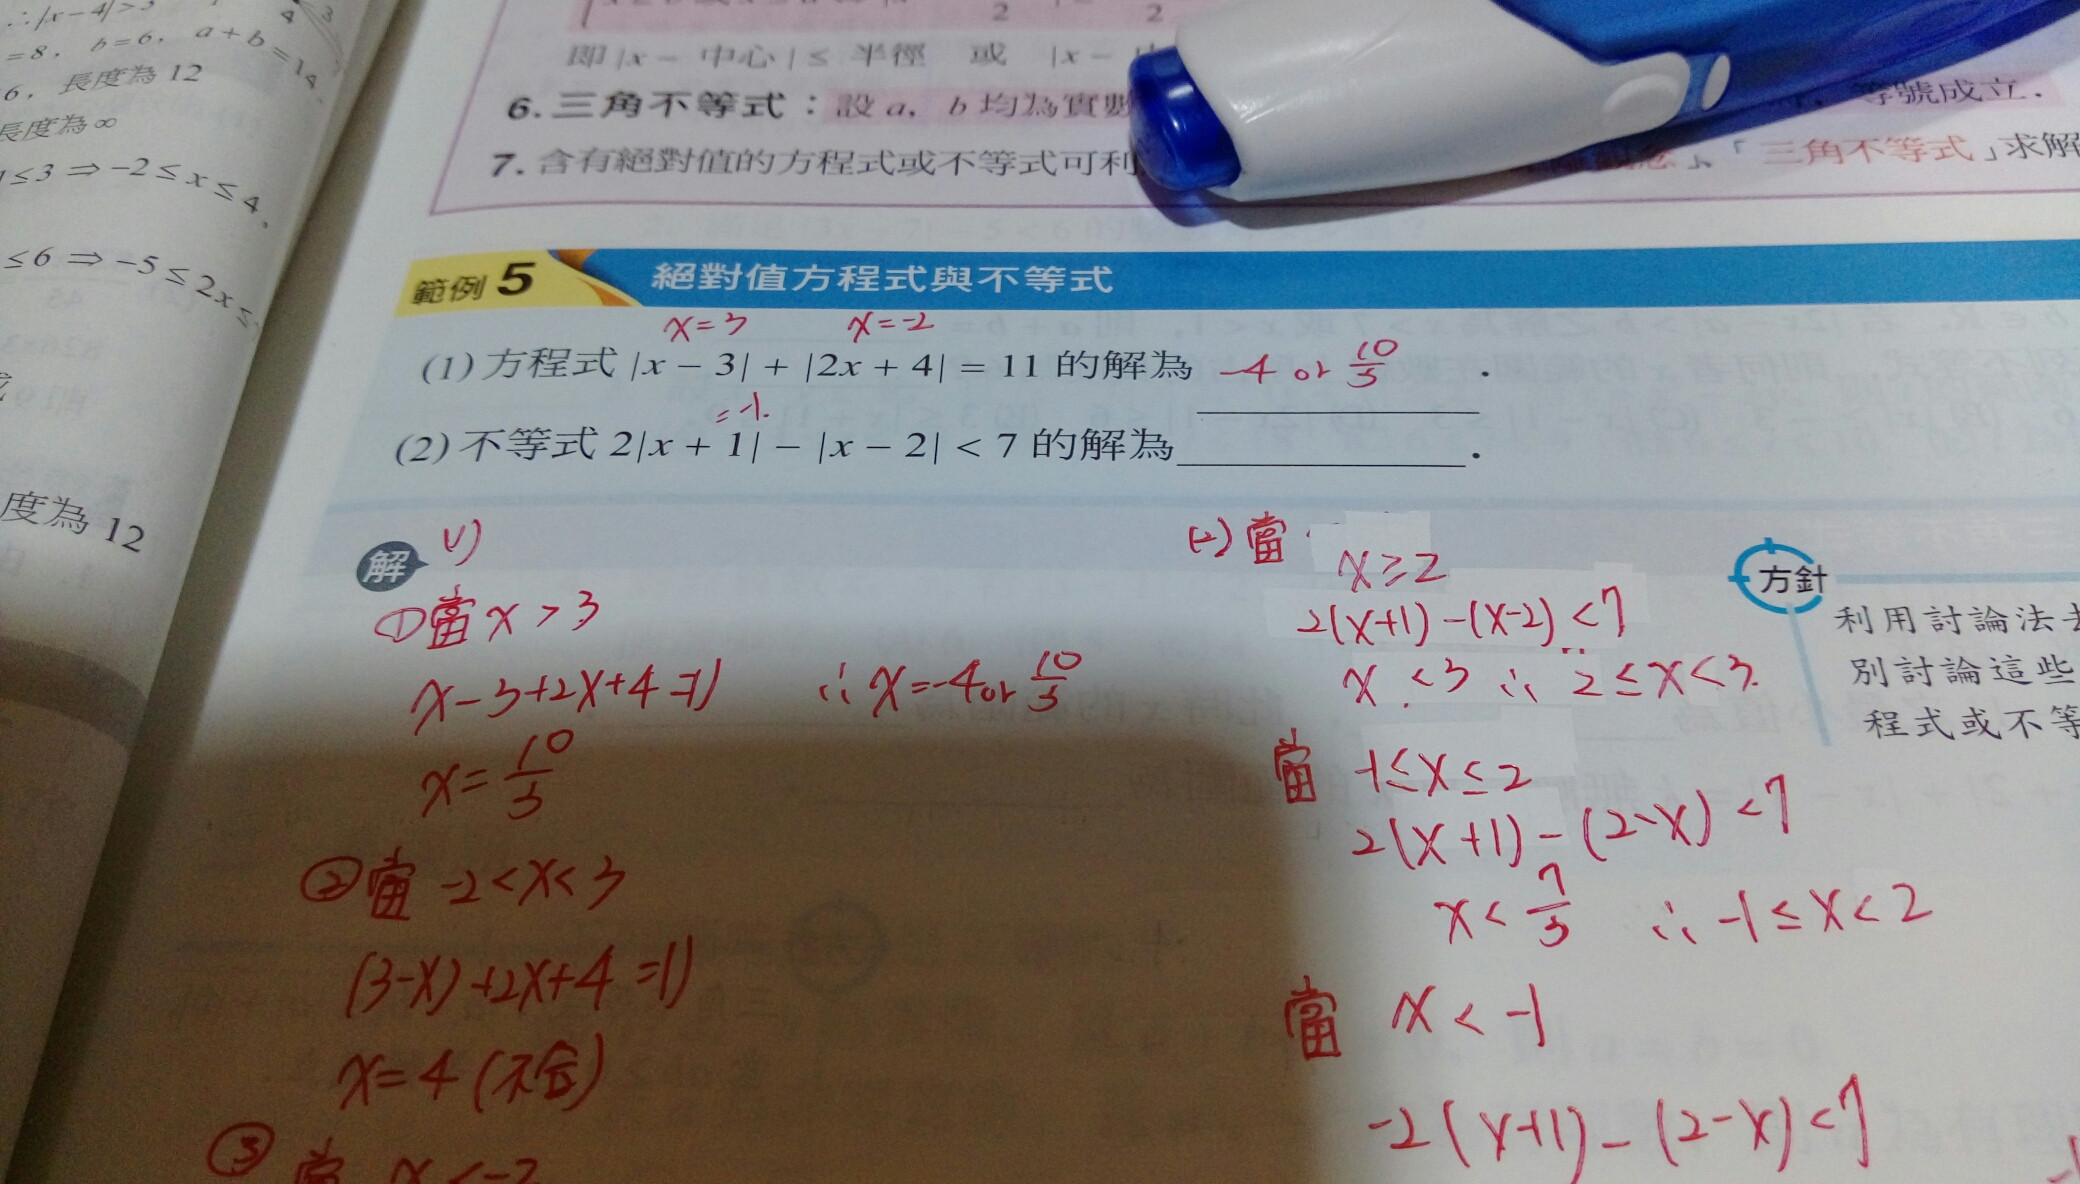 ∴|x−4|>3
=8, b=6, a+b=14.
6, 長度為 12
長度為 ∞
≤3 ⇒ −2 ≤ x ≤ 4,
≤6 ⇒ −5 ≤ 2x ≤
度為 12
即 |x − 中心| ≤ 半徑 或 |x −
6. 三角不等式：設 a, b 均為實數 等號成立.
7. 含有絕對值的方程式或不等式可利 」、「三角不等式」求解
範例 5 絕對值方程式與不等式
x=3 x=-2
(1) 方程式 |x − 3| + |2x + 4| = 11 的解為 -4 or 10/3 .
=-1.
(2) 不等式 2|x + 1| − |x − 2| < 7 的解為 .
解 (1)
①當 x > 3
x-3+2x+4=11 ∴ x=-4 or 10/3
x = 10/3
②當 -2<x<3
(3-x)+2x+4=11
x=4 (不合)
③當 x<-2
(2) 當 x≥2
2(x+1)-(x-2)<7
x<3 ∴ 2≤x<3.
當 -1≤x≤2
2(x+1)-(2-x)<7
x<7/3 ∴ -1≤x<2
當 x<-1
-2(x+1)-(2-x)<7
方針
利用討論法去
別討論這些
程式或不等